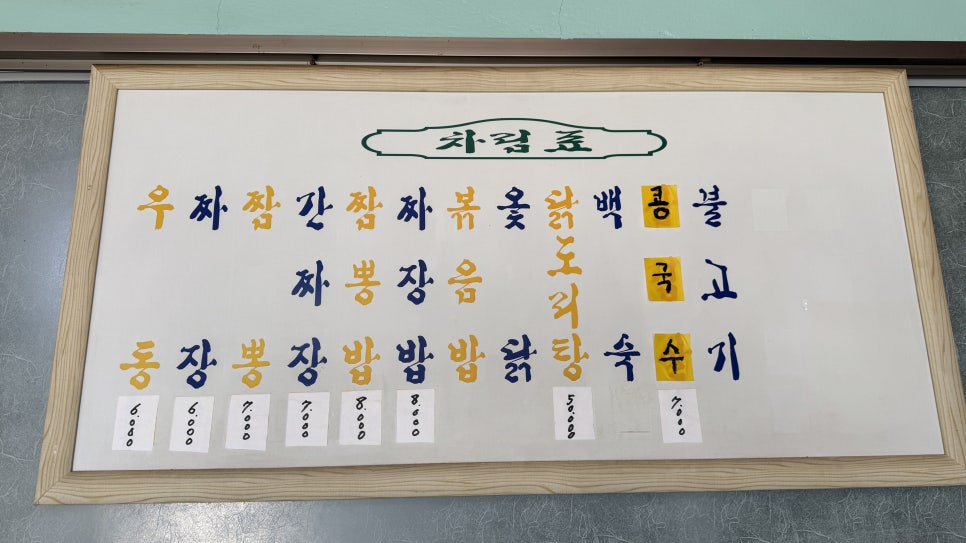 차림표
우동
6.000
짜장
6.000
짬뽕
7.000
간짜장
7.000
짬뽕밥
8.000
짜장밥
8.000
볶음밥
옻닭
닭도리탕
50.000
백숙
콩국수
7.000
불고기